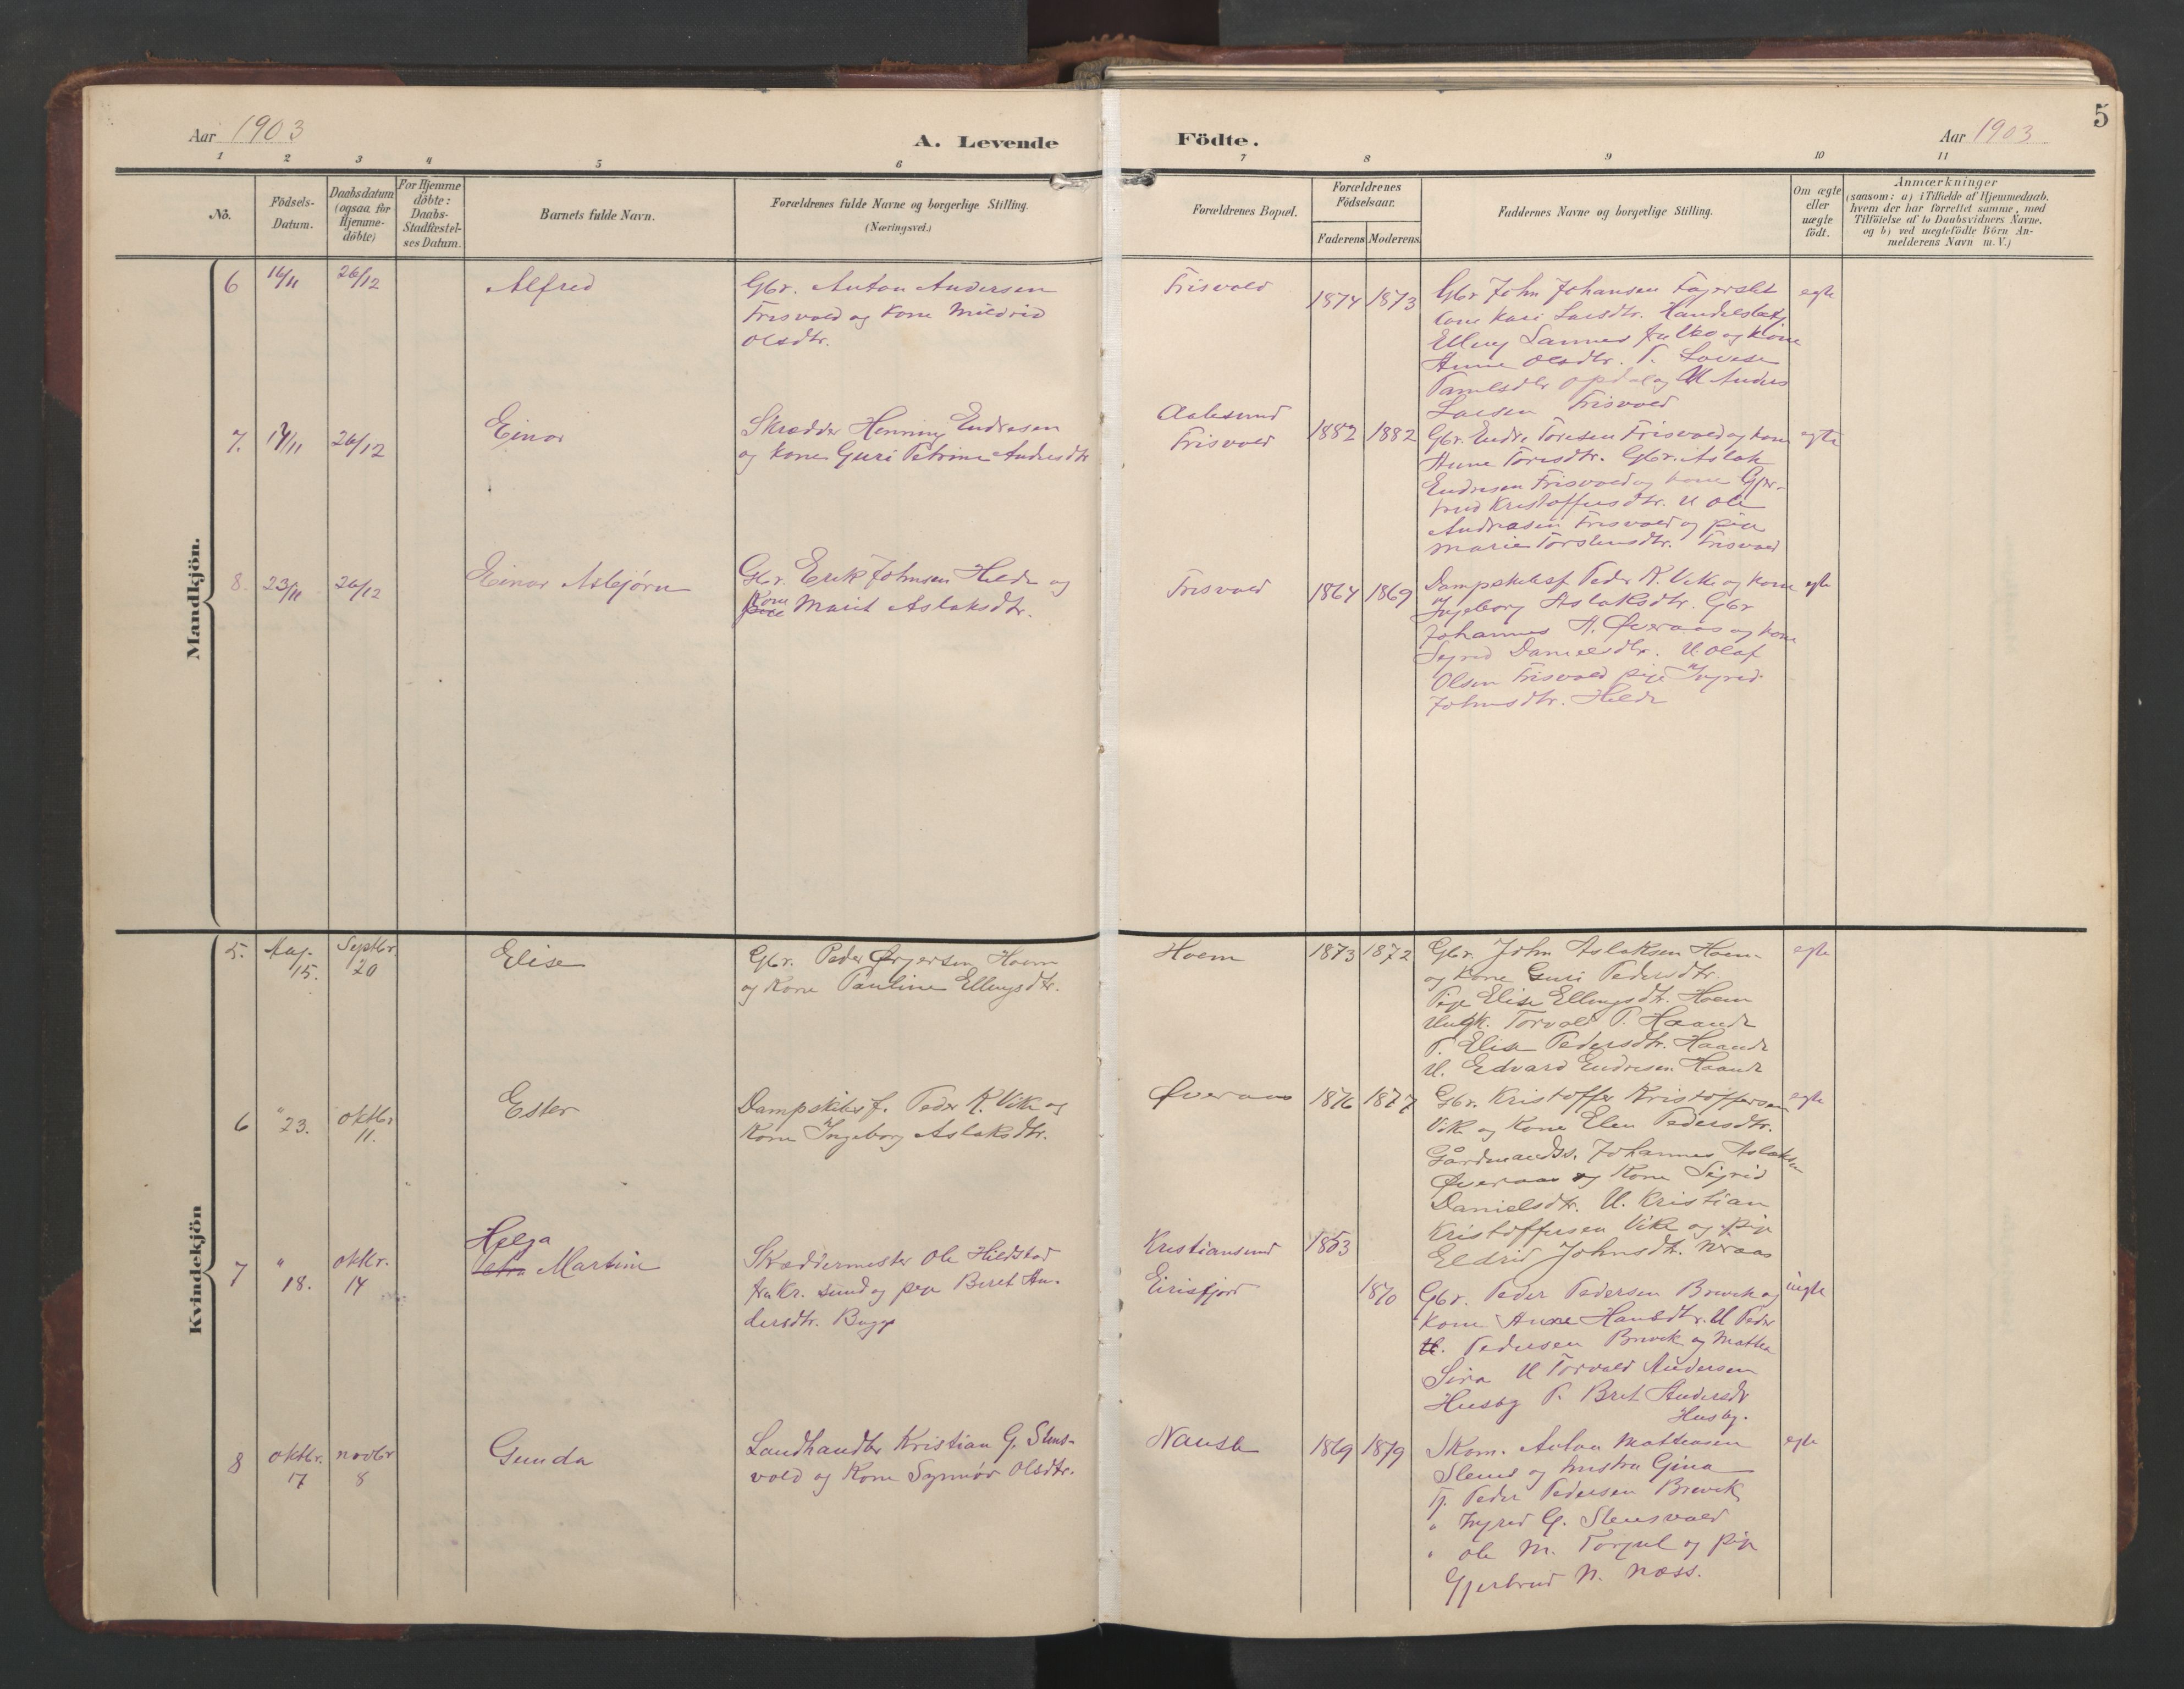 5
Aar 1903
A. Levende
Födte.
Aar 1903
1 2 3 4 5 6 7 8 9 10 11
No.
Födsels-
Datum.
Daabsdatum
(ogsaa for
Hjemme-
döbte)
For Hjemme
döbte:
Daabs-
Stadfæstel-
ses Datum.
Barnets fulde Navn.
Forældrenes fulde Navne og borgerlige Stilling.
(Næringsvei.)
Forældrenes Bopæl.
Forældrenes
Födselsaar.
Faderens Moderens
Faddernes Navne og borgerlige Stilling.
Om ægte
eller
uægte
födt.
Anmærkninger
(saasom: a) i Tilfælde af Hjemmedaab.
hvem der har forrettet samme, med
Tilföielse af to Daabsvidners Navne.
og b) ved uægtefödte Börn An-
melderens Navn m. V.)
Mandkjön.
6 16/11 26/12 Alfred
Gbr. Anton Andersen
Frisvold og Kone Mildrid
Olsdtr.
Frisvold
1874 1873
Gbr John Johansen Fagerslet
Kone Kari Larsdtr. Handelsbetj
Elling Sannes fra Veø og Kone
Anne Olsdtr. P. Lovise
Opdal og U Anders
Larsen Frisvold
egte
7. 17/11 26/12 Einar
Skrædder Henning Endresen
og Kone Guri Petrine Andersdtr
Aalesund
Frisvold
1882 1882
Gbr. Endre Toresen Frisvold og kone
Anne Toresdtr. Gbr. Aslak
Endresen Frisvold og kone Gjer-
trud Kristoffersdtr. U Ole
Andreasen Frisvold og pige
Marie Torstensdtr. Frisvold
egte
8. 23/11 26/12 Einar Asbjørn
Gbr. Erik Johnsen Hilde og
Kone
Marit Aslaksdtr.
Frisvold
1864 1869
Dampskibsf Peder K. Vike og kone
Ingeborg Aslaksdtr. Gbr
Johannes A. Øveraas og kone
Sigrid Danielsdtr. U. Olaf
Olsen Frisvold pige Ingrid
Johnsdtr. Hilde
egte
Kvindekjön
5. Aug. 15. Septbr. 20 Elise
Gbr. Peder Ørjersen Hoem
og Kone Pauline Ellingsdtr.
Hoem
1873 1872
Gbr. John Aslaksen Hoem
og Kone Guri Pedersdtr.
Pige Elise Ellingsdtr. Hoem
Ungk. Torvald P. Haande
P. Elise Pedersdtr. Haande
U. Edvard Endresen Haande
egte
6 " 23. Oktbr 11. Ester
Dampskibsf. Peder K. Vike og
Kone Ingeborg Aslaksdtr.
Øveraas
1876 1877
Gbr. Kristoffer Kristoffersen
Vike og Kone Elen Pedersdtr.
Gårdmandss. Johannes Aslaksen
Øveraas og Kone Sigrid
Danielsdtr. U. Kristian
Kristoffersen Vike og Pige
Eldrid Johnsdtr.
egte
7 " 18. oktbr. 14
Helga
Martine
Skræddermester Ole Hildstad
fra Kr. sund og pige Beret An-
dersdtr. Bugge
Kristiansund
Eirisfjord
1853
1870
Gbr. Peder Pedersen Brevik og
Kone Anne Hansdtr. U Peder
Pedersen Brevik og Mathea
Sira U Torvald Andersen
Husby P. Bret Andersdtr
Husby.
uegte
8 oktbr. 17 novbr 8 Gunda
Landhandler Kristian G. Stens-
vold og Kone Synnøv Olsdtr.
Nauste
1869 1879
Skom. Anton Mathiasen
og hustru Gina
Tj. Peder Pedersen Brevik
" Ingrid G. Stensvold
" Ole M. Torjul og pige
Gjertrud N. Næss.
egte